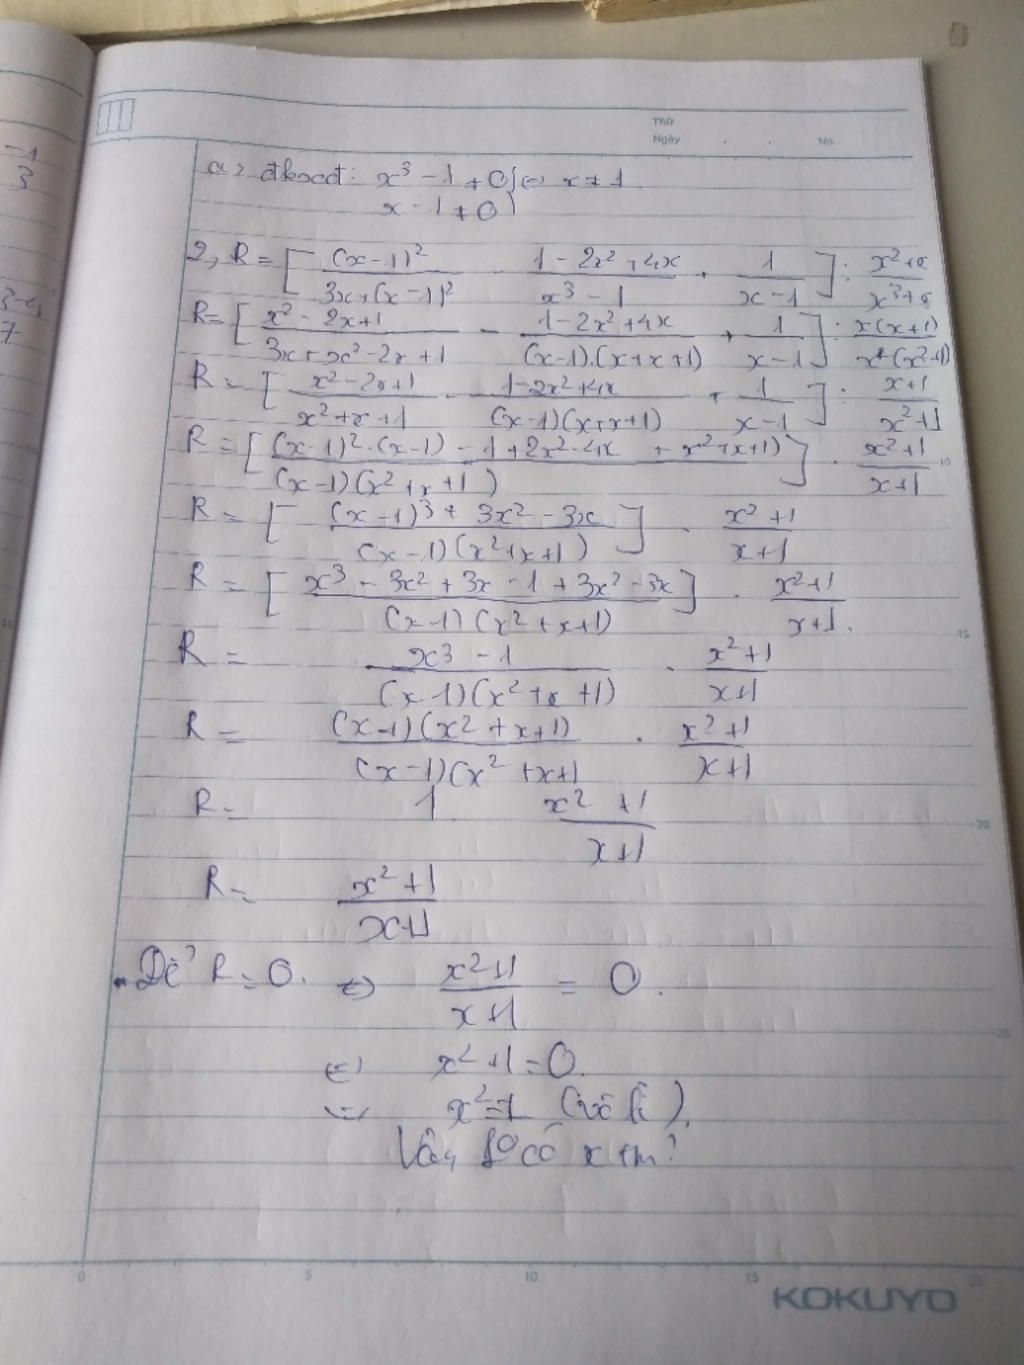 -1
3
7
Thứ
Ngày . . No.
a, đkxđ: x³ - 1 ≠ 0 } ⇔ x ≠ 1.
x - 1 ≠ 0 }
2, R = [ (x-1)² / 3x+(x-1)² - 1-2x²+4x / x³-1 + 1 / x-1 ] : x²+x / x³+x
R = [ x²-2x+1 / 3x+x²-2x+1 - 1-2x²+4x / (x-1).(x+x+1) + 1 / x-1 ] : x(x+1) / x(x²+1)
R = [ x²-2x+1 / x²+x+1 - 1-2x²+4x / (x-1)(x+x+1) + 1 / x-1 ] : x+1 / x²+1
R = [ (x-1)².(x-1) - 1+2x²-4x + x²+x+1) / (x-1)(x²+x+1) ] . x²+1 / x+1
R = [ (x-1)³ + 3x² - 3x / (x-1)(x²+x+1) ] . x²+1 / x+1
R = [ x³ - 3x² + 3x - 1 + 3x² - 3x / (x-1)(x²+x+1) ] . x²+1 / x+1.
R = x³ - 1 / (x-1)(x²+x+1) . x²+1 / x+1
R = (x-1)(x²+x+1) / (x-1)(x²+x+1 . x²+1 / x+1
R = 1 x²+1 / x+1
R = x²+1 / x+1
Để R = 0. ⇔ x²+1 / x+1 = 0.
⇔ x²+1 = 0.
⇔ x²=-1 (vô lí).
Vậy k⁰ có x tm?
0 5 10 15 20
10
15
20
25
15
KOKUYO